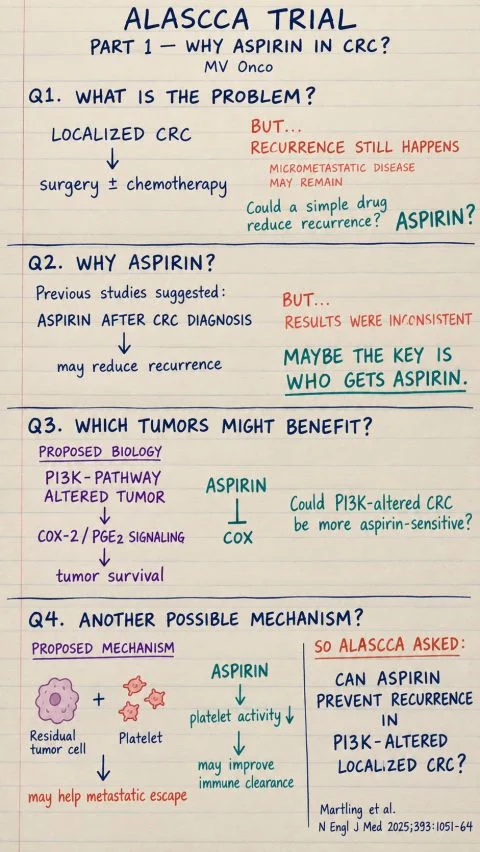 ALASCCA TRIAL
PART 1 – WHY ASPIRIN IN CRC?
MV Onco
Q1. WHAT IS THE PROBLEM?
LOCALIZED CRC
↓
surgery ± chemotherapy
BUT...
RECURRENCE STILL HAPPENS
MICROMETASTATIC DISEASE
MAY REMAIN
Could a simple drug
reduce recurrence?
ASPIRIN?
Q2. WHY ASPIRIN?
Previous studies suggested:
ASPIRIN AFTER CRC DIAGNOSIS
↓
may reduce recurrence
BUT...
RESULTS WERE INCONSISTENT
MAYBE THE KEY IS
WHO GETS ASPIRIN.
Q3. WHICH TUMORS MIGHT BENEFIT?
PROPOSED BIOLOGY
PI3K-PATHWAY
ALTERED TUMOR
↓
COX-2 / PGE₂ SIGNALING
↓
tumor survival
ASPIRIN
⊥
COX
Could PI3K-altered CRC
be more aspirin-sensitive?
Q4. ANOTHER POSSIBLE MECHANISM?
PROPOSED MECHANISM
+
Residual
tumor cell
Platelet
↓
may help metastatic escape
ASPIRIN
↓
platelet activity ↓
↓
may improve
immune clearance
SO ALASCCA ASKED:
CAN ASPIRIN
PREVENT RECURRENCE
IN
PI3K-ALTERED
LOCALIZED CRC?
Martling et al.
N Engl J Med 2025;393:1051-64